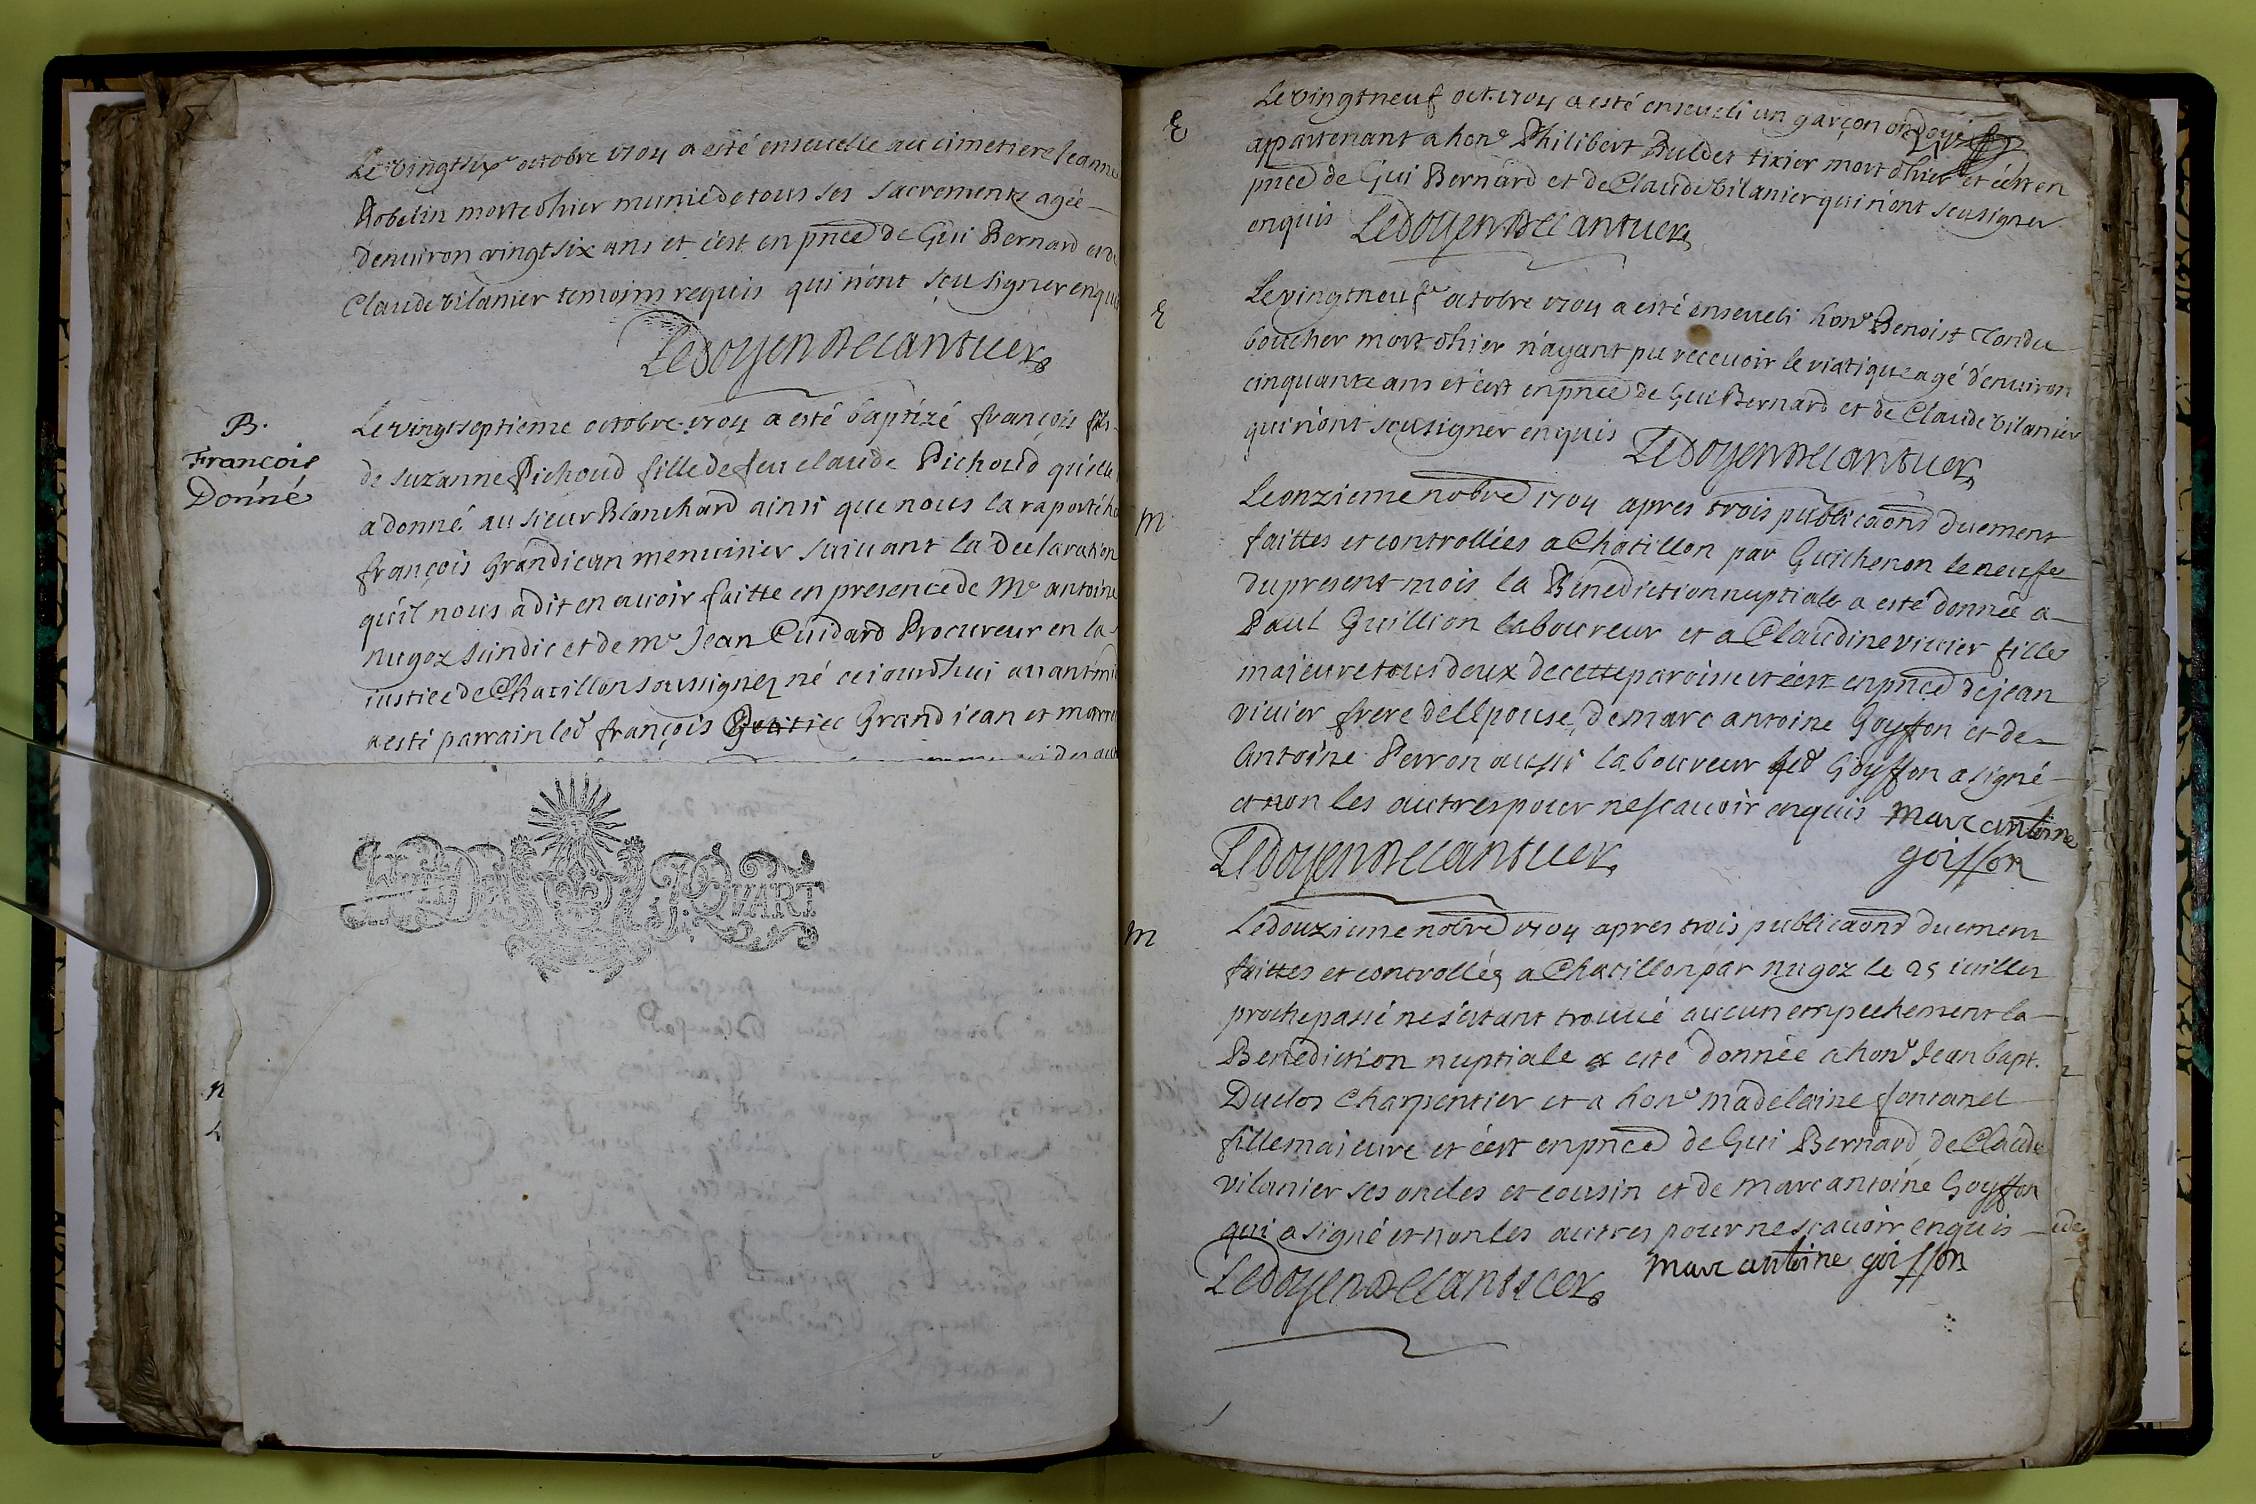 Le vingtsix octobre 1704 a esté enseuelle au cimetiere Jeanne
Robelin morte dhier munie de tous ses sacrements agée
denuiron vingt six ans et c'est en pnce de Gui Bernard et de
Claude vilanier temoins requis qui n'ont sçu signer enquis
Ledoyen
B.
François
Donné
Le vingtseptieme octobre 1704 a esté baptizé françois fils
de suzanne Pichoud fille de feu claude Pichoud qu'elle
a donné au sieur Blanchard ainsi que nous la raporté
françois Grandiean menuisier suiuant la Declaration
qu'il nous a dit en auoir faitte en presence de Me antoine
nugoz sindic et de me Jean Cuidard Procureur en la
iustice de Chatillon soussignez né ceiourdhui auant
a esté parrain led françois Grand iean et
QVART
E
Le vingtneuf oct. 1704 a esté enseueli un garçon ondoyé
appartenant a hone Philibert Buldet tixier mort dhier et c'est en
pnce de Gui Bernard et de Claude vilanier qui n'ont sceu signer
enquis Ledoyen
E
Le vingtneufe octobre 1704 a esté enseueli hone Benoist Tondu
boucher mort dhier n'ayant pu receuoir le viatique agé d'enuiron
cinquante ans et c'est en pnce de Gui Bernard et de Claude vilanier
qui n'ont sceu signer enquis Ledoyen
m
Le onzieme nobre 1704 apres trois publicaons duement
faittes et controllées a Chatillon par Guichenon le neufe
du present mois la Benediction nuptiale a esté donnée a
Paul Guillion laboureur et a Claudine viuier fille
majeure tous deux de cette paroisse et c'est en pnce de jean
viuier frere de l'Epouse, de marc antoine Goyffon et de
Antoine Perron aussi laboureur led Goyffon a signé
et non les autres pour ne sçauoir enquis marc antoine
goiffon
Ledoyen
m
Le douzieme nobre 1704 apres trois publicaons duement
faittes et controllés a Chatillon par nugoz le 25 iuillet
proche passé ne s'étant trouué aucun empechement la
Benediction nuptiale a esté donnée a hone Jean bapt.
Duclos Charpentier et a hone madelaine fontanel
fille maieure et c'est en pnce de Gui Bernard de Claude
vilanier ses oncles et cousin et de marc antoine Goyffon
qui a signé et non les autres pour ne sçauoir enquis
Ledoyen marc antoine goiffon